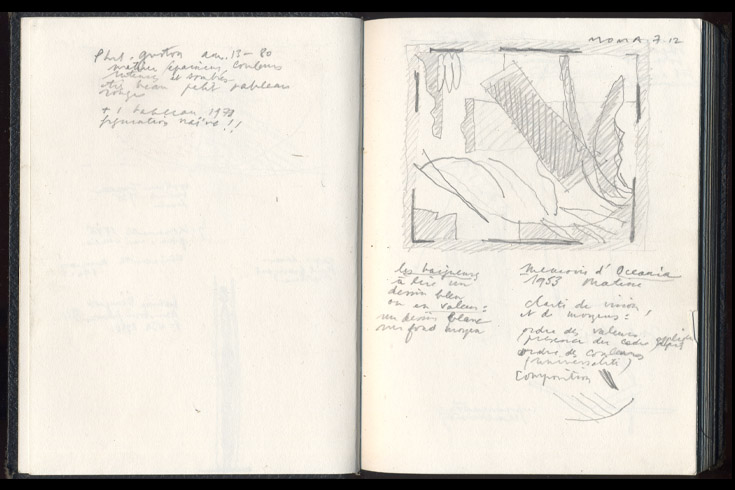 Phil. Guston ann. 13 - 80
matière épaisseur couleurs
intenses et sombres
très beau petit tableau
rouge
+ 1 tableau 197
figuration naïve !!
MOMA 7.12
les baigneurs
à lire un
dessin bleu
ou en valeur :
un dessin blanc
sur fond moyen
Memoris d' Oceania
1953 Matisse
clarté de vision !
et de moyens :
ordre des valeurs
présence du cadre
ordre des couleurs
(universalité)
Composition